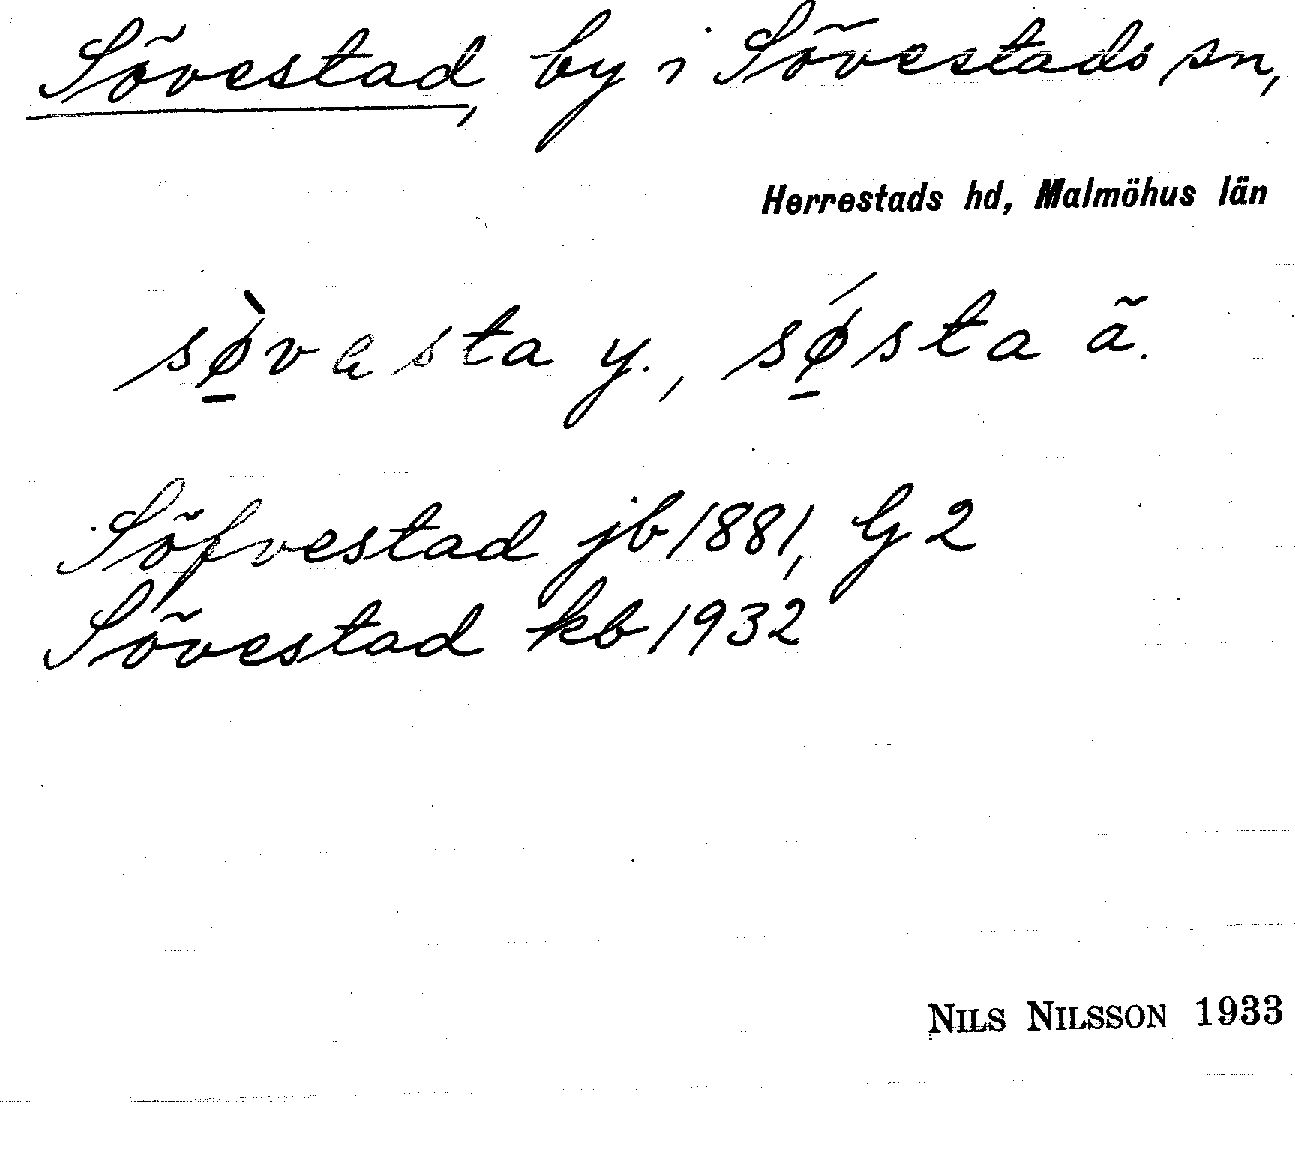 Sövestad, by i Sövestads sn,
Herrestads hd, Malmöhus län
sø̱̀vəsta y., sǿ̱sta ä.
Söfvestad jb 1881, G 2
Sövestad kb 1932
NILS NILSSON 1933